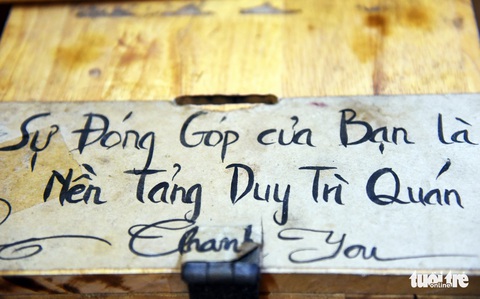 tuổi trẻ
Sự Đóng Góp của Bạn là
Nền Tảng Duy Trì Quán
Thank You
tuổi trẻ
online